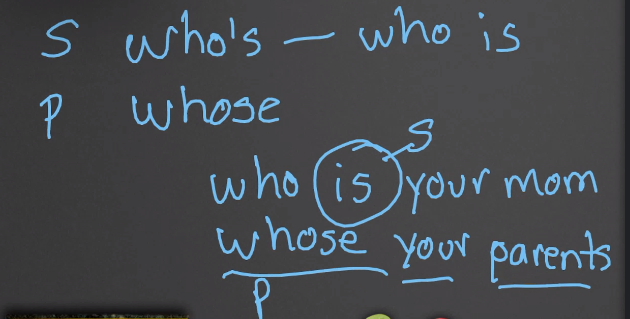 S who's — who is
P whose
S
who is your mom
whose your parents
P